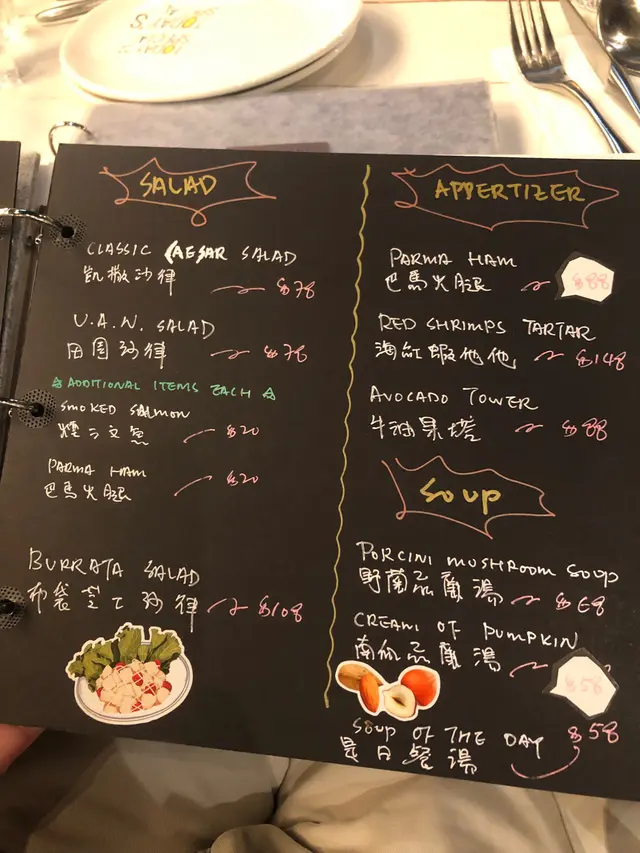 SALAD
CLASSIC CAESAR SALAD
凱撒沙律 $78
U.A.N. SALAD
田園沙律 $78
ADDITIONAL ITEMS EACH
SMOKED SALMON
煙三文魚 $20
PARMA HAM
巴馬火腿 $20
BURRATA SALAD
布袋芝士沙律 $108
APPERTIZER
PARMA HAM
巴馬火腿 $88
RED SHRIMPS TARTAR
海紅蝦他他 $148
AVOCADO TOWER
牛油果塔 $88
SOUP
PORCINI MUSHROOM SOUP
野菌忌廉湯 $68
CREAM OF PUMPKIN
南瓜忌廉湯 $58
SOUP OF THE DAY $58
是日餐湯